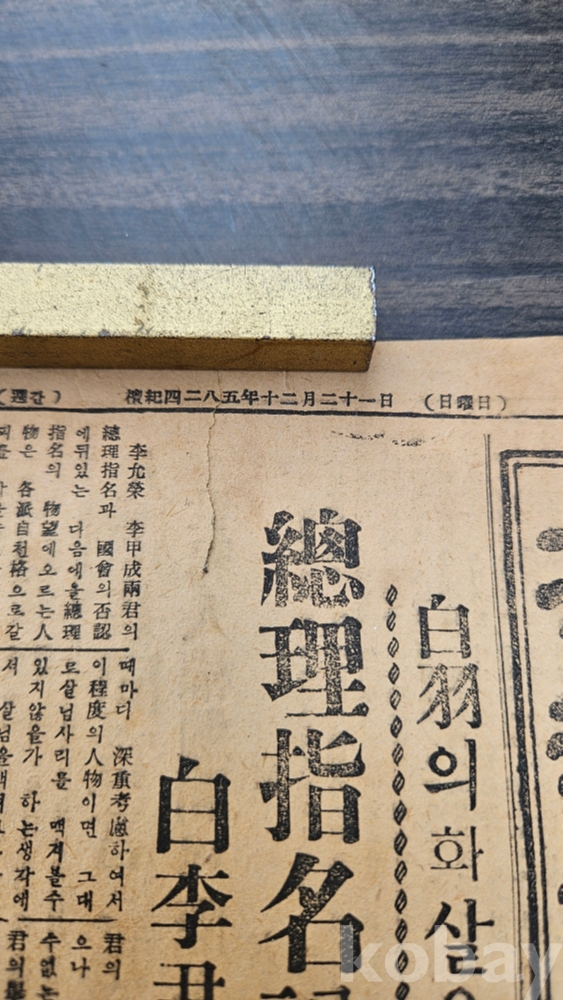 (週간) 檀紀四二八五年十二月二十一日 (日曜日)
白羽의화살
總理指名
白李
李允榮 李甲成兩君의
總理指名과 國會의否認
에뒤있는 다음에올總理
指名의 物望에오르는人
物은 各派自천格으로갈
때마다 深重考慮하여서
이程度의人物이면 그대
로살님사리를 맥겨볼수
있지않을가 하는생각에
서 살님을맥겨
君의
으나
수없는
君의
kobay